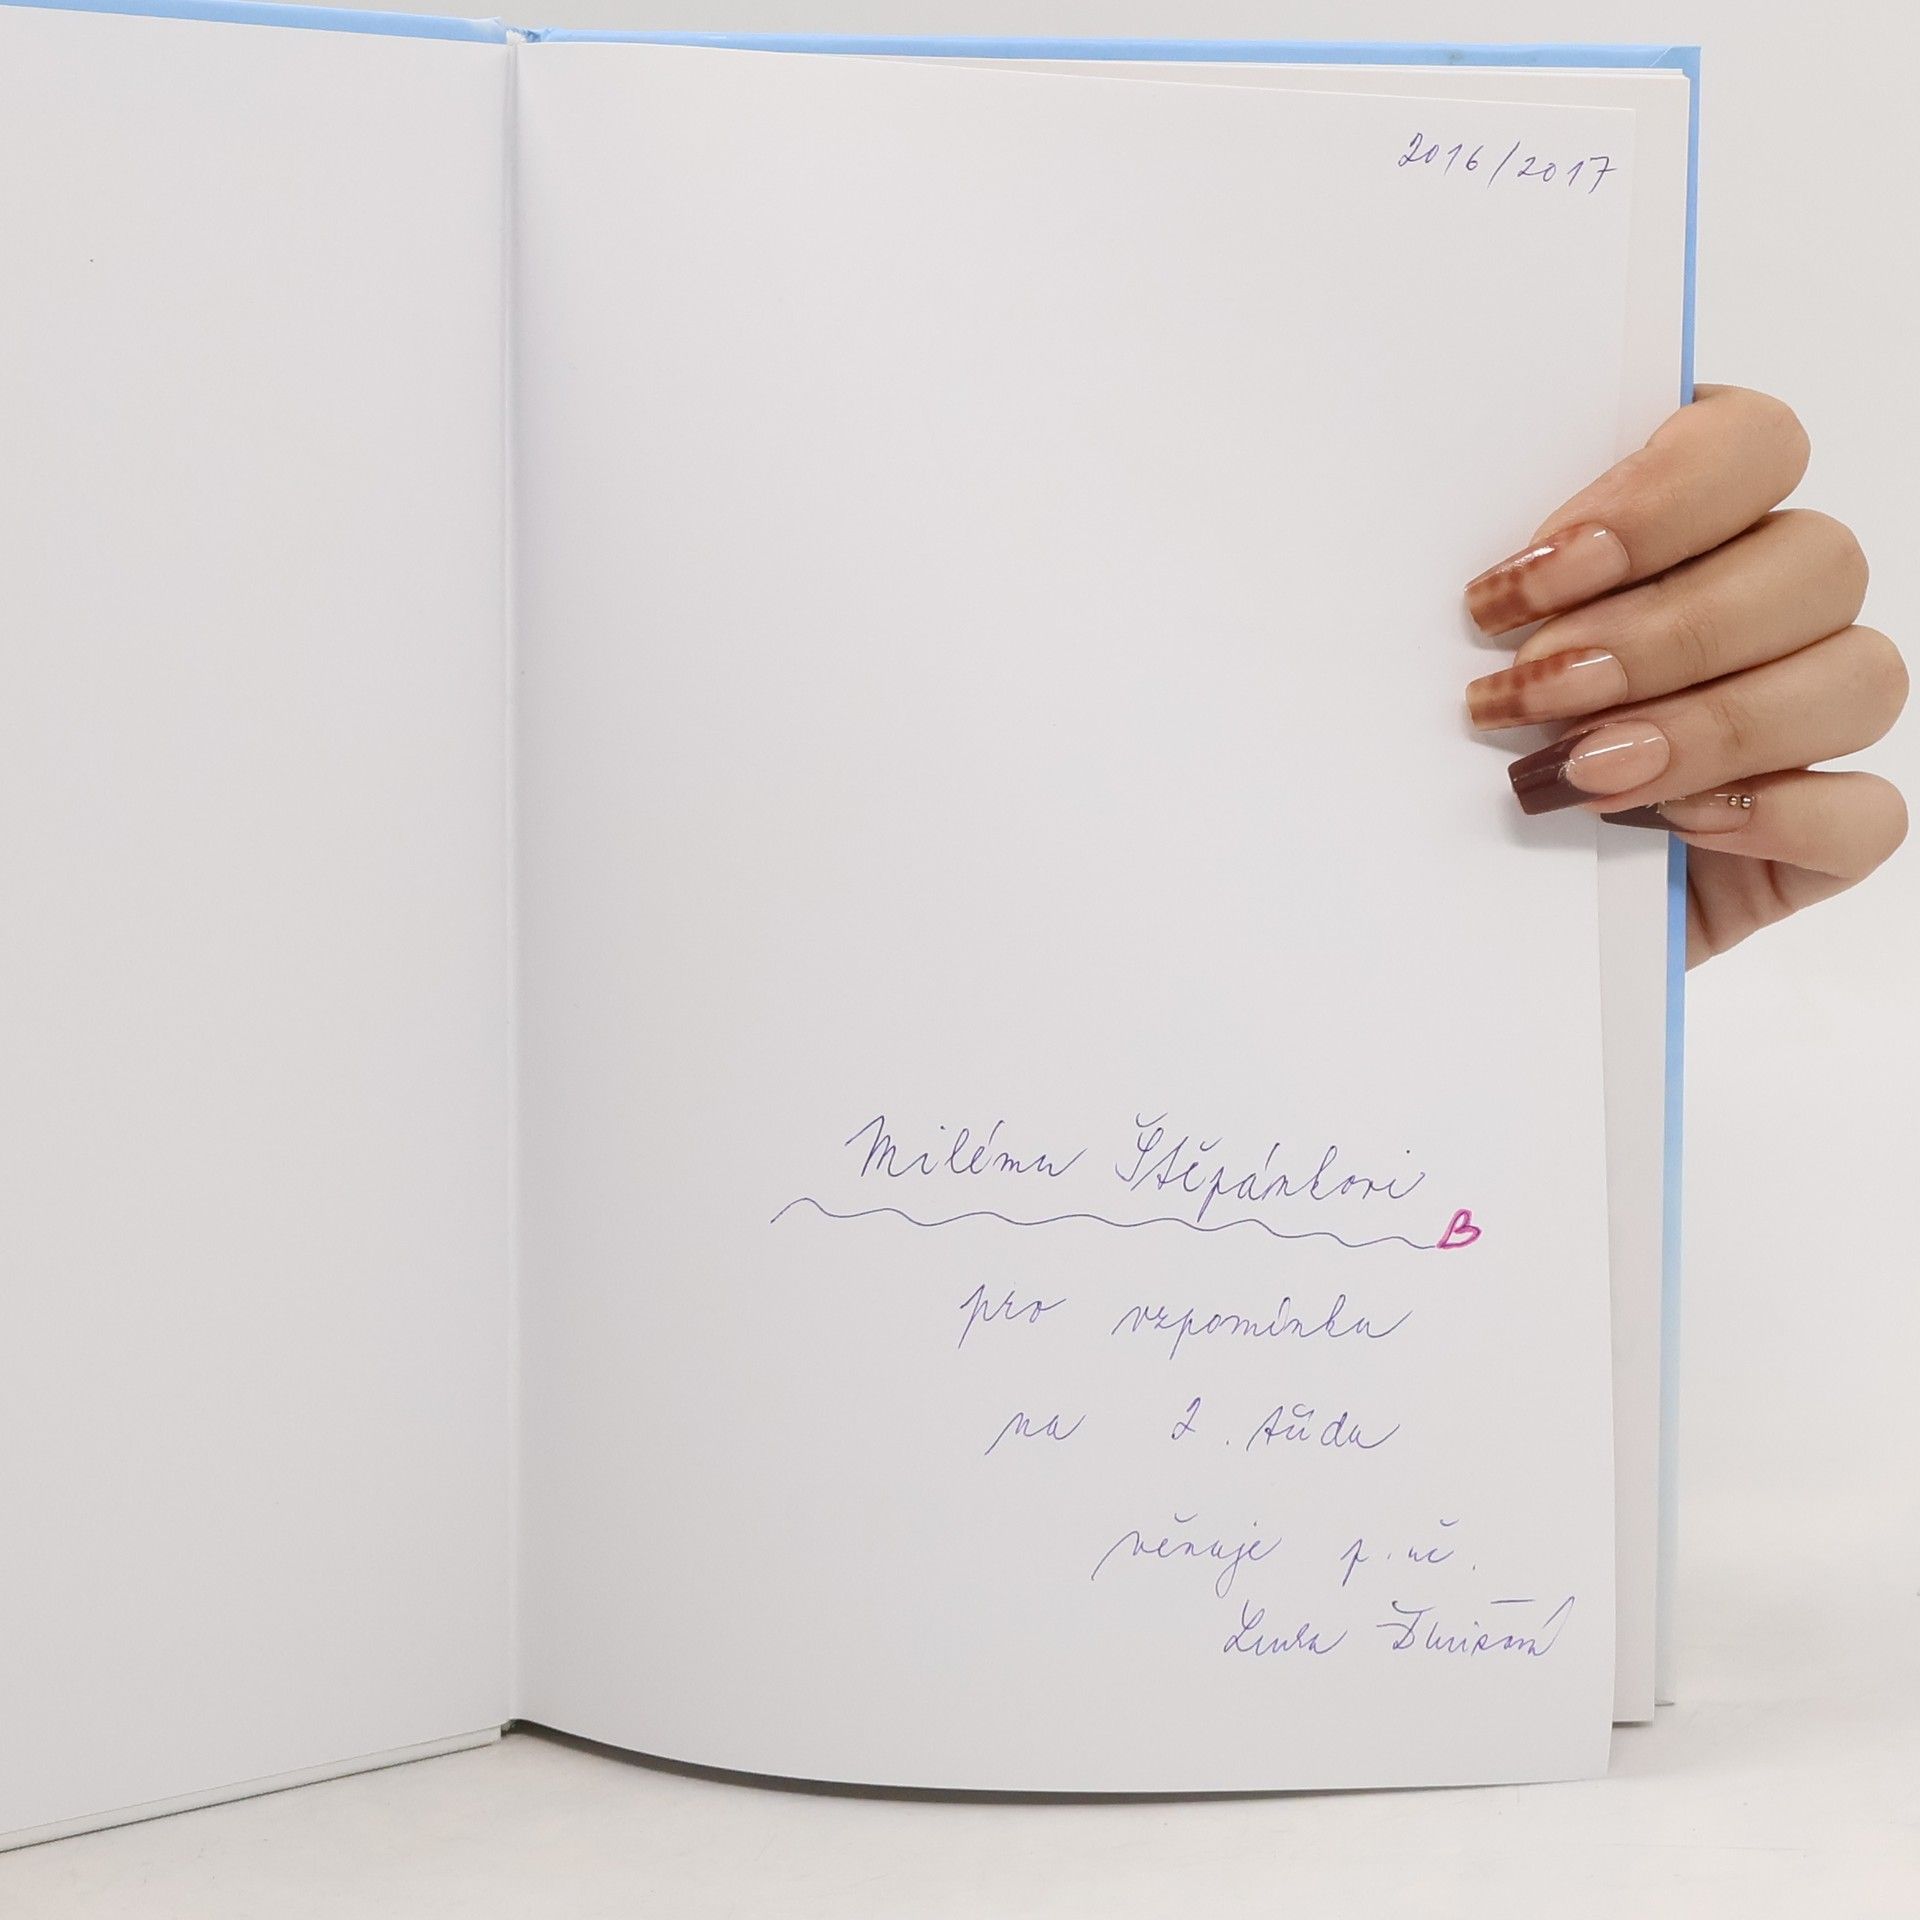 2016/2017
Milému Štěpánkovi
pro vzpomínku
na 2. třídu
věnuje p. uč.